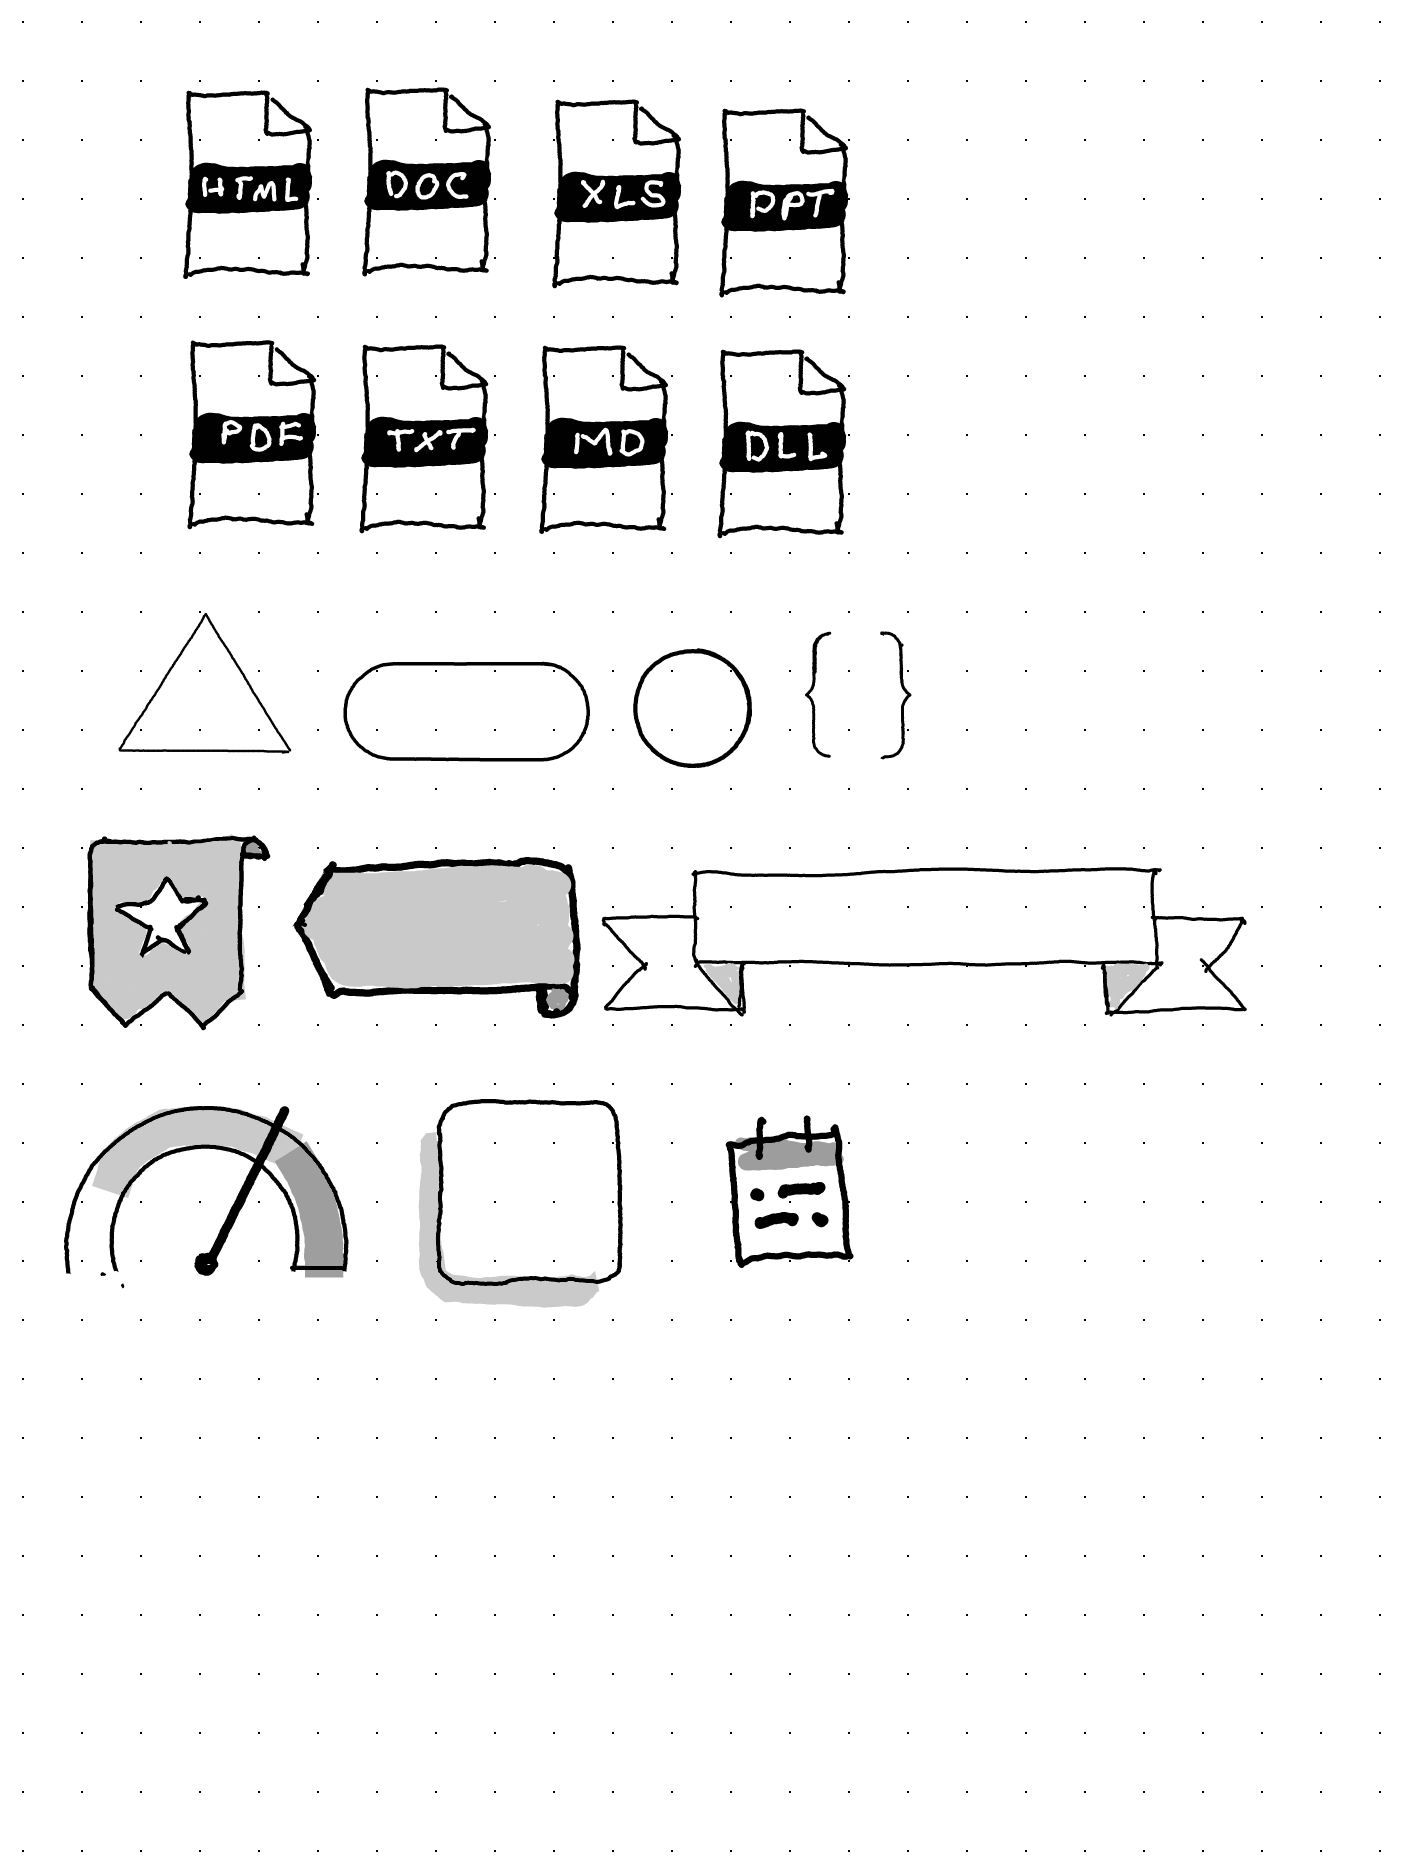 HTML DOC XLS PPT
PDF TXT MD DLL
{ }